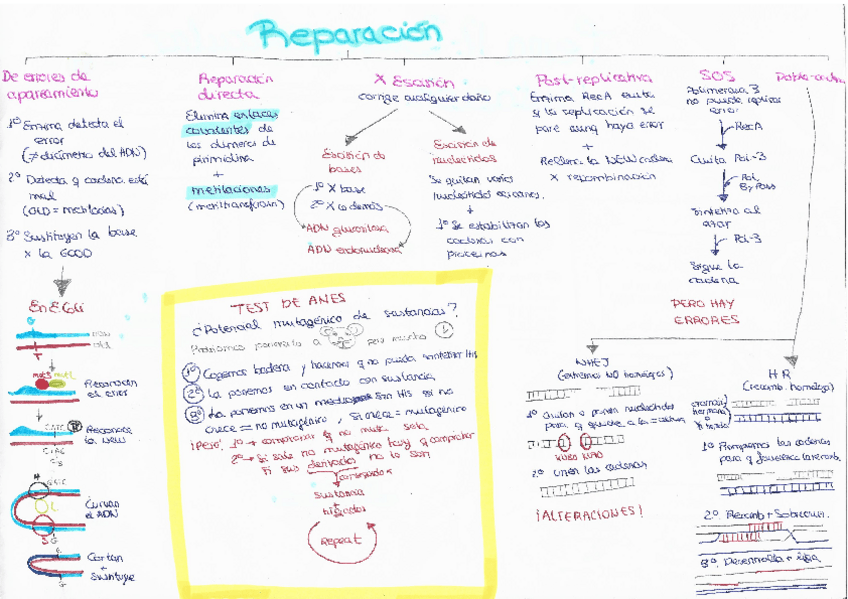 Reparación
De errores de
apareamiento
1º Enzima detecta el
error
(≠ diámetro del ADN)
2º Detecta q cadena está
mal
(OLD = metiladas)
3º Sustituyen la base
x la GOOD
En E.Coli
new
OLD
T
mutS mutL
Reconocen
el error
Reconoce
la new
H
L
S
Curvan
el ADN
Cortan
+
Sustituye
Reparación
directa
Elimina enlaces
covalentes de
los dímeros de
pirimidina
+
metilaciones
(metiltransferasa)
X Escisión
corrige cualquier daño
Escisión de
bases
1º X base
2º X lo demás
ADN glucosilasa
ADN endonucleasa
Escisión de
nucleótidos
Se quitan varios
nucleótidos cercanos.
+
1º Se estabilizan las
cadenas con
proteínas
Post-replicativa
Enzima RecA evita
q la replicación se
pare aunq haya error
+
Rellena la NEW cadena
x recombinación
SOS
Polimerasa 3
no puede replicar
error
RecA
Quita Pol-3
Pol
By Pass
Sintetiza al
azar
Pol-3
Sigue la
cadena
PERO HAY
ERRORES
Doble-cadena
TEST DE AMES
¿Potencial mutagénico de sustancias?
Podríamos ponerlo a pero mucho
1º Cogemos bacteria y hacemos q no pueda sintetizar His
2º La ponemos en contacto con sustancia
3º La ponemos en un medio sin His si no
crece = no mutagénico, si crece = mutagénico
¡Pero! 1º → comprobar q no muta sola
2º → Si sale no mutagénico hay q comprobar
si sus derivados no lo son
sustancia
hígados
Repeat
NHEJ
(extremos NO homólogos)
1º Quitan o ponen nucleótidos
para q quede a la = altura
KU80 KU70
2º Unen las cadenas
¡ALTERACIONES!
HR
(recomb. homóloga)
cromátida
hermana
1º Rompemos las cadenas
para q favorezca la recomb.
2º Recomb + Sobrecruz.
3º Desenrolla + liga